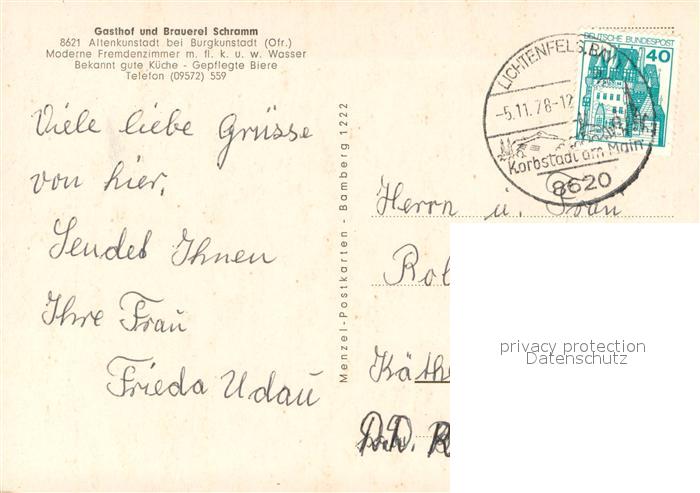 Gasthof und Brauerei Schramm
8621 Altenkunstadt bei Burgkunstadt (Ofr.)
Moderne Fremdenzimmer m. fl. k. u. w. Wasser
Bekannt gute Küche - Gepflegte Biere
Telefon (09572) 559
Viele liebe Grüsse
von hier,
Sendet Ihnen
Ihre Frau
Frieda Udau
Menzel-Postkarten - Bamberg 1222
LICHTENFELS, BAY
-5.11.78-12
Korbstadt am Main
8620
DEUTSCHE BUNDESPOST
40
Herrn u. Frau
Rol
Käthe
privacy protection
Datenschutz